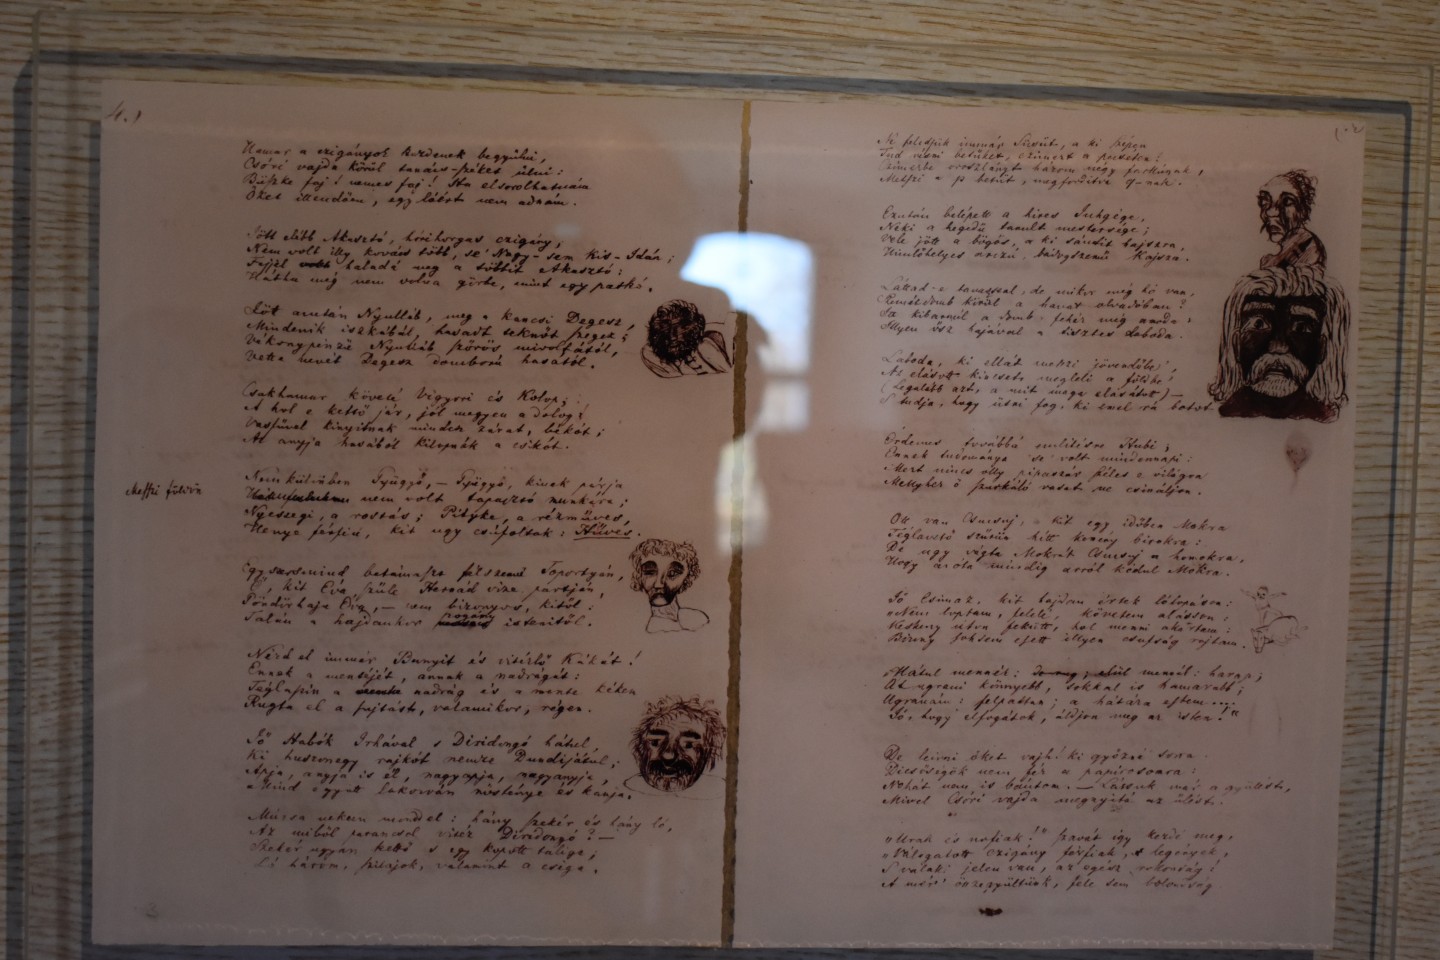 4.)
Hamar a czigányok kezdenek begyülni,
Csóri vajda körül tanács-széket ülni:
Büszke faj! nemes faj! Ha elsorolhatnám
Őket illendően, egy lóért nem adnám.
Jött előbb Akasztó, hórihorgas czigány,
Nem volt illy kovács több, se Nagy- sem Kis-Idán;
Fejjel haladá meg a többit Akasztó:
Hátha még nem volna görbe, mint egy patkó.
Jött azután Nyulláb, meg a kancsi Degesz,
Mindenik iszkábál, hasadt teknőt szegez;
Vékonypénzű Nyulláb szőrös mivoltától,
Vette nevét Degesz domború hasától.
Csakhamar követé Vigyori és Kolop;
A hol e kettő jár, jól megyen a dolog:
Vasfűvel kinyitnak minden zárat, békót;
Az anyja hasából kilopnák a csikót.
Nemkülönben Gyügyű,
nem volt tapasztó munkára;
Nyeszegi, a rostás; Pityke, a rézműves,
Henye férfiú, kit ugy csúfoltak: Hűves.
Egyszersmind betámolyg félszemű Toportyán,
kit Éva szüle Hernád vize partján,
Éva, — nem bizonyos, kitől:
Talán a hajdankor pogány istenitől.
Nézd el immár Bunyit és vitézlő Kákát!
Ennek a mentéjét, annak a nadrágát:
Téglaszín a nadrág és a mente kéken
Rugta el a fajtást, valamikor, régen.
Jő Habók Irhával s Diridongó hátul
Ki huszonegy rajkót nemze Dundijátul;
Apja, anyja is él, nagyapja, nagyanyja,
Mind együtt lakozván nősténye és kanja.
Múzsa nekem mondd el: hány szekér és hány ló,
Az miből parancsol vitéz Diridongó? —
Szekér ugyan kettő s egy kopott taliga;
Ló három, valamint a csiga.
Ne feledjük immár Süsüt, a ki szépen
Tud vésni betüket, czímert a pecséten:
Czímerbe oroszlányt három négy farkúnak,
Metszi a p betüt, megfordítva q-nak.
Ezután belépett a híres Juhgége,
Neki a hegedű tanult mestersége;
Vele jött a bőgős, a ki sándít bajszra,
Himlőhelyes orczú, Kajsza.
Láttad-e tavasszal, de mikor még hó van,
Szemétdomb körül a havat olvadóban?
a domb fehér még
Illyen ősz hajával a tisztes Laboda.
Laboda, ki ellát messzi jövendőbe;
Az elásott kincset megleli a földbe;
(Legalább azt, a mit maga elásatott) —
S tudja, hogy ütni fog, ki emel rá botot.
Érdemes továbbá említésre Hubi;
Ennek tudománya se volt mindennapi:
Mert nincs olly pipaszár széles e világon
Mellyhez ő szurkáló vasat ne csináljon.
Ott van Csucsuj, a kit egy időben Mokra
Téglavető szűzün hítt kemény birokra:
De ugy vágta Mokrát Csucsuj a homokra,
Hogy azóta mindig arról kódul Mokra.
Jő Csimaz, kit hajdan értek lólopáson:
„Nem loptam, felelé, követem alásson;
Keskeny utva feküdt, hol menni akartam:
Bizony sohsem esett illyen csufság rajtam.
Hátul mennék: mennél: harap;
Átugrani könnyebb, sokkal is hamarább;
Ugranám: felpattan; a hátára ejtem....
Jó, hogy elfogátok, áldjon meg az isten!"
De leírni őket vajh! ki győzné sorra
Dicsőségök nem fér a papirosomra:
Nehát nem is bántom. — Lássuk már a gyülést,
Mivel Csóri vajda megnyitá az ülést.
„Urak és nofiak!" szavát így kezdé meg,
„Válogatott czigány férfiak, s legények,
S valaki jelen van, az egész rokonság!
A miért összegyültünk, féle sem bolondság